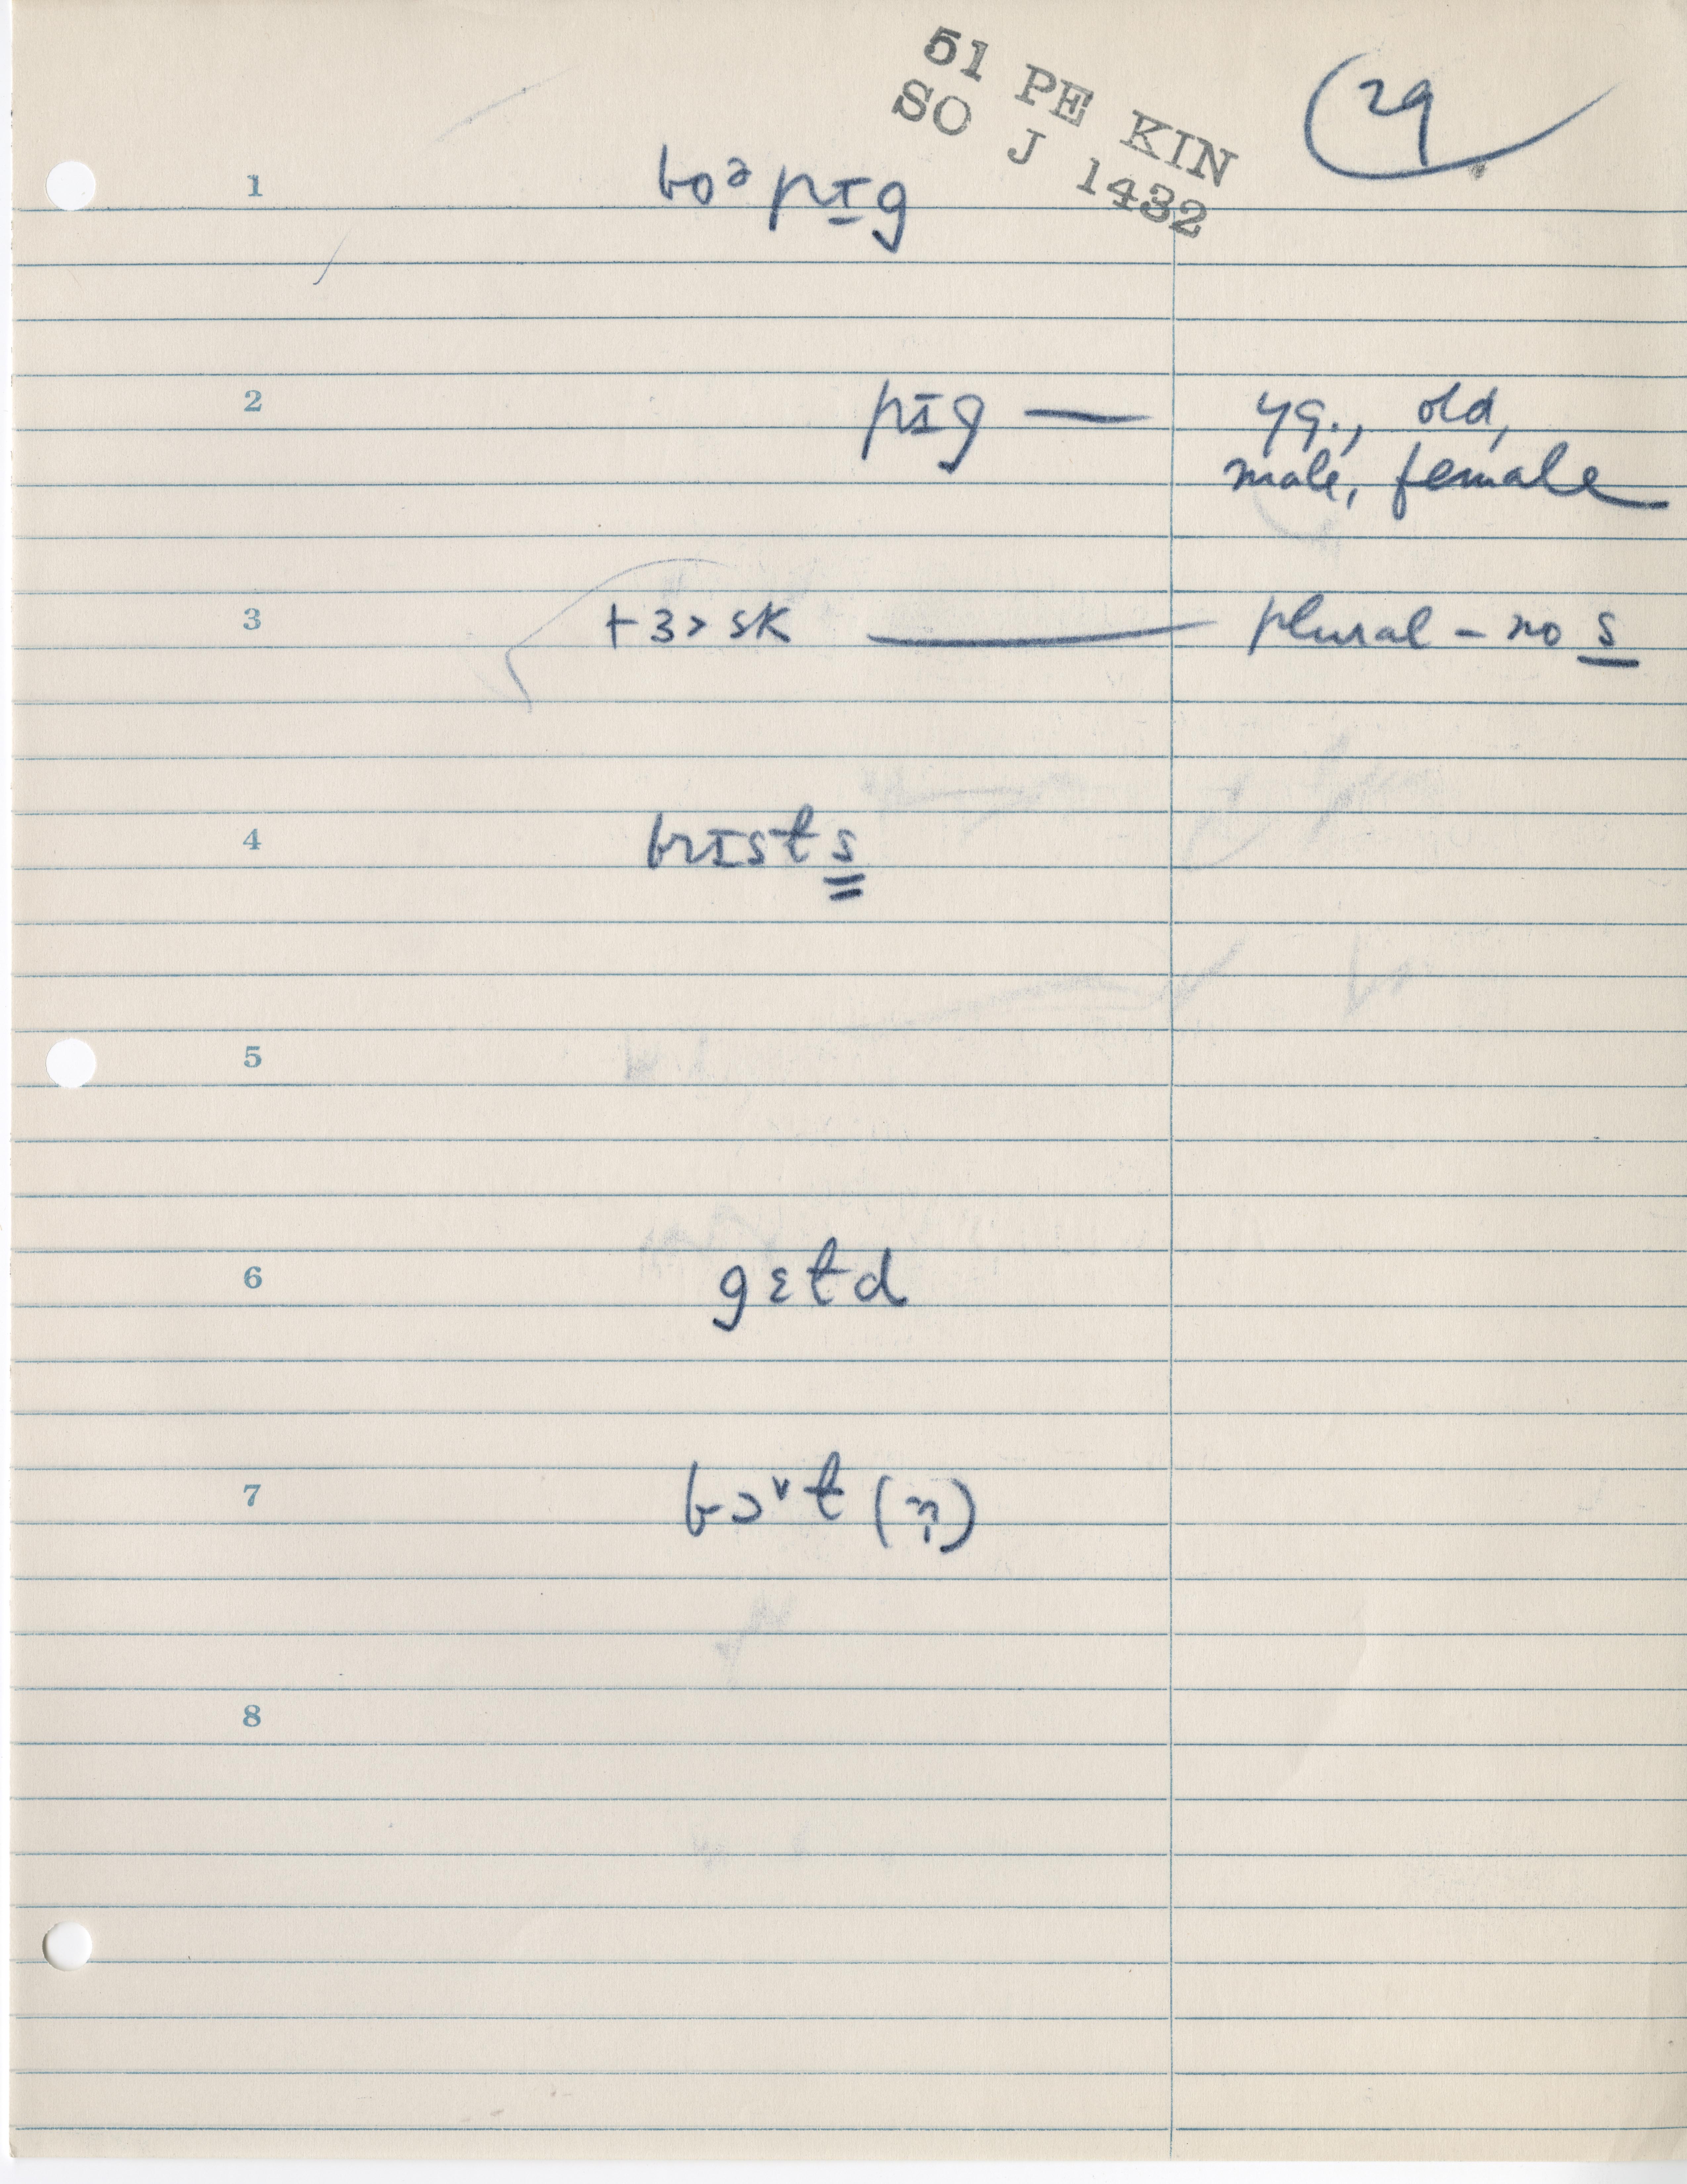 51 PE KIN
SO J 1432
29
1 boᵊ pɪg
2 pɪg — yg., old,
male, female
3 tɜ˃sk — plural – no s
4 brɪsts
5
6 gɛtd
7 bɔ˅t (n̩)
8